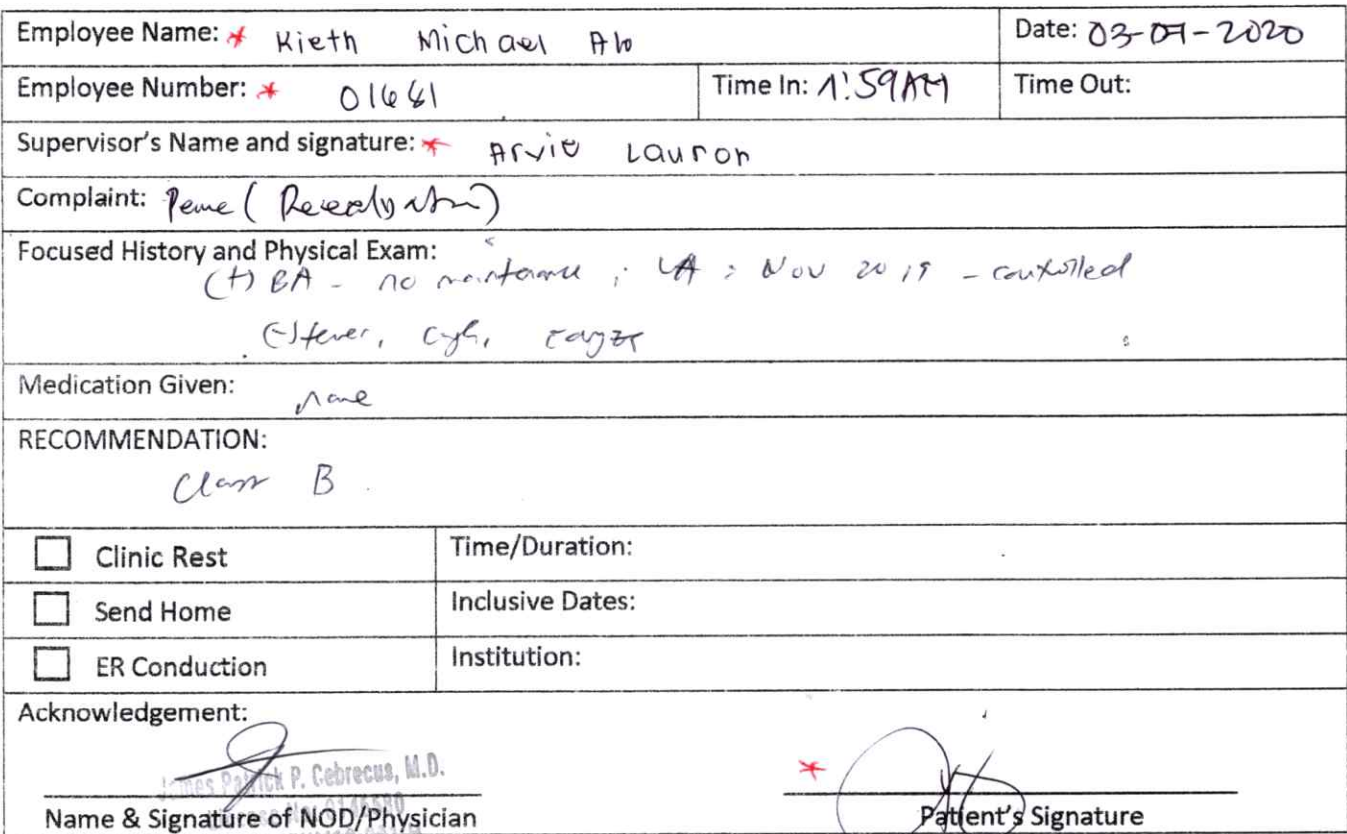 Employee Name: * Kieth Michael Alo Date: 03-07-2020
Employee Number: * Time In: 1:59AM Time Out:
Supervisor's Name and signature: * Arvie Lauron
Complaint: Peme (
Focused History and Physical Exam:
(+) BA - no maintenance ; LA : Nov 2019 - controlled
(-) fever, cough,
Medication Given: none
RECOMMENDATION:
Class B
Clinic Rest Time/Duration:
Send Home Inclusive Dates:
ER Conduction Institution:
Acknowledgement:
James Patrick P. Cebrecus, M.D.
*
Name & Signature of NOD/Physician Patient's Signature